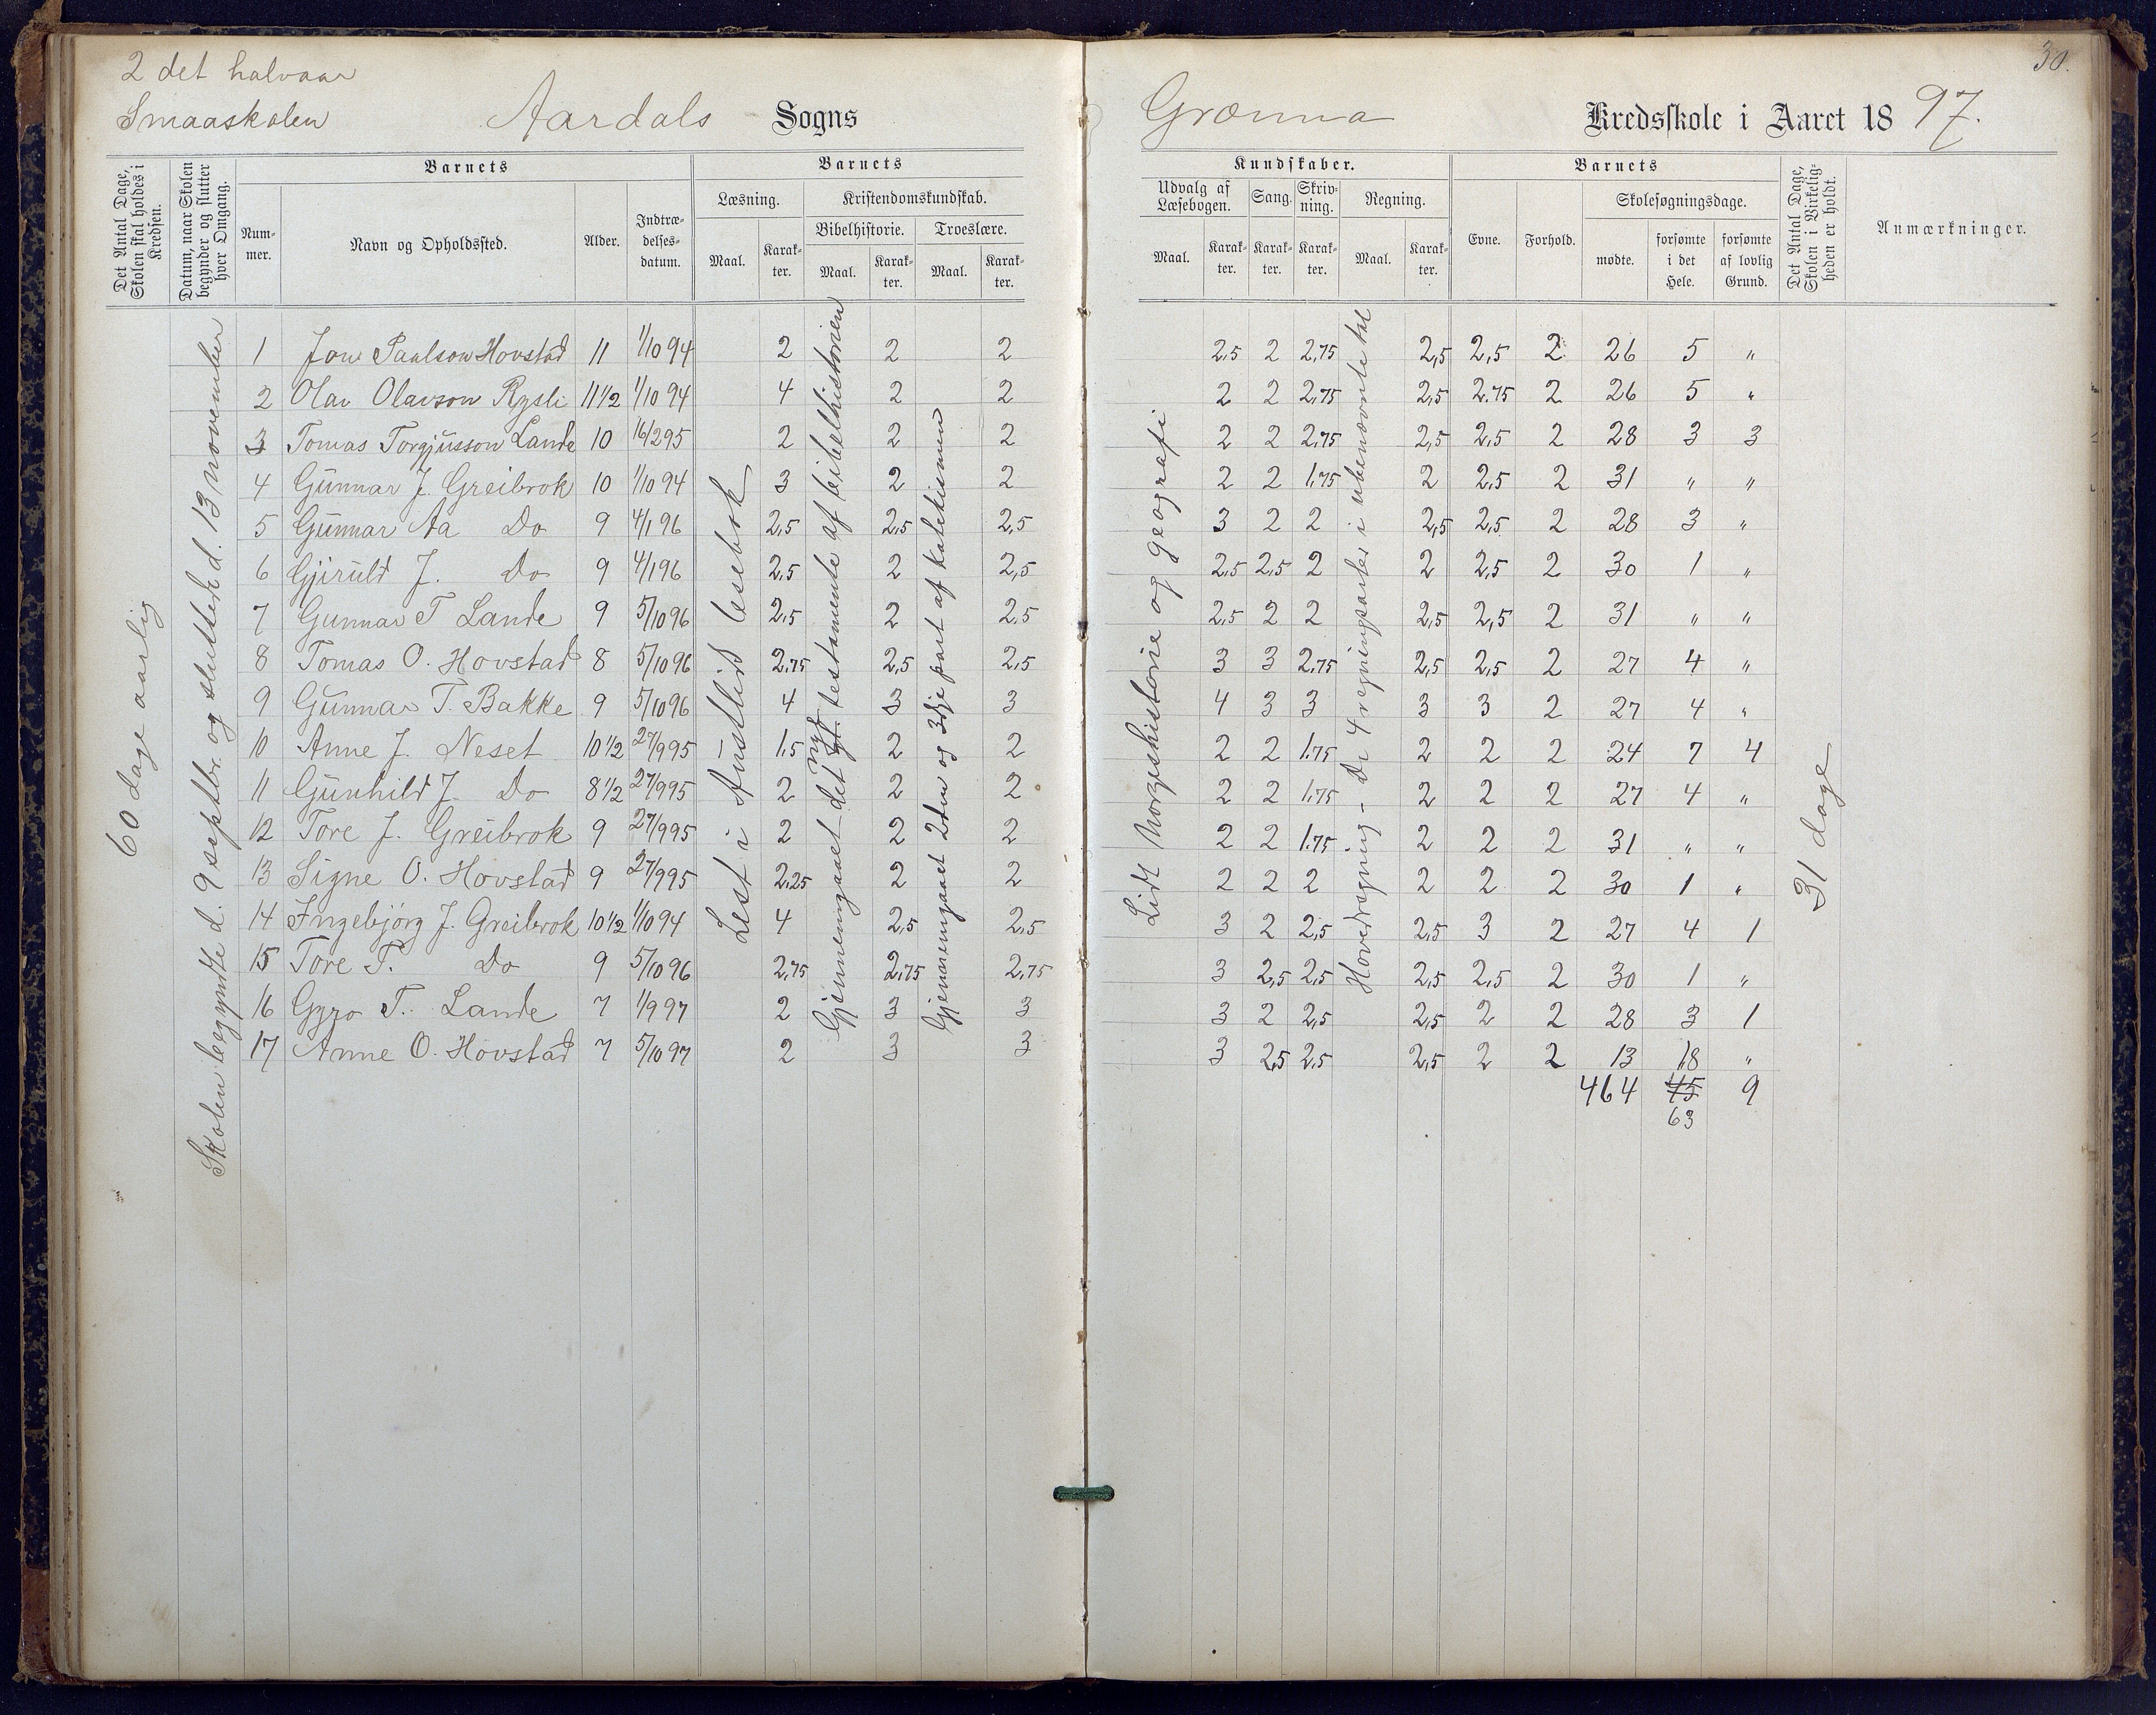 2 det halvaar
Smaaskolen Aardals Sogns
Barnets
Barnets
Det Antal Dage, Skolen skal holdes i Kredsen.
Datum, naar Skolen begynder og slutter hver Omgang.
Læsning. Kristendomskundskab.
Bibelhistorie. Troeslære.
Num-mer. Navn og Opholdssted. Alder. Indtræ-delses-datum. Maal. Karak-ter. Maal. Karak-ter. Maal. Karak-ter.
60 dage aarlig
Skolen begyndte d. 9 septbr. og sluttede d. 13 november
Lest i Austlid lesebok
Gjennemgaaet det gl. nye testamente af bibelhistorien
Gjennemgaaet 2den og 3dje part af katekismen
1 Jon Paulson Hovstad 11 1/10 94 2 2 2
2 Olav Olavson Rysli 11 1/2 1/10 94 4 2 2
3 Tomas Torgjusson Lande 10 16/2 95 2 2 2
4 Gunnar J. Greibrok 10 1/10 94 3 2 2
5 Gunnar Aa Do 9 4/1 96 2,5 2,5 2,5
6 Gjiruld J. Do 9 4/1 96 2,5 2 2,5
7 Gunnar T Lande 9 5/10 96 2,5 2 2,5
8 Tomas O. Hovstad 8 5/10 96 2,75 2,5 2,5
9 Gunnar T. Bakke 9 5/10 96 4 3 3
10 Anne J. Neset 10 1/2 27/9 95 1,5 2 2
11 Gunhild J. Do 8 1/2 27/9 95 2 2 2
12 Tore J. Greibrok 9 27/9 95 2 2 2
13 Signe O. Hovstad 9 27/9 95 2,25 2 2
14 Ingebjörg J. Greibrok 10 1/2 1/10 94 4 2,5 2,5
15 Tore T. Do 9 5/10 96 2,75 2,75 2,75
16 Gyro T. Lande 7 1/9 97 2 3 3
17 Anne O. Hovstad 7 5/10 97 2 3 3
30.
Grænna Kredsskole i Aaret 18 97.
Kundskaber. Barnets
Udvalg af Læsebogen. Sang. Skriv-ning. Regning. Evne. Forhold. Skolesøgningsdage.
Det Antal Dage, Skolen i Virkelig-heden er holdt.
Anmærkninger.
Maal. Karak-ter. Karak-ter. Karak-ter. Maal. Karak-ter. mødte. forsømte i det Hele. forsømte af lovlig Grund.
Lidt Norgeshistorie og geografi
Hovedregning - De 4 regningsarter i ubenævnte tal
31 dage
2,5 2 2,75 2,5 2,5 2 26 5 "
2 2 2,75 2,5 2.75 2 26 5 "
2 2 2,75 2,5 2,5 2 28 3 3
2 2 1,75 2 2,5 2 31 " "
3 2 2 2,5 2,5 2 28 3 "
2,5 2,5 2 2 2,5 2 30 1 "
2,5 2 2 2,5 2,5 2 31 " "
3 3 2,75 2,5 2,5 2 27 4 "
4 3 3 3 3 2 27 4 "
2 2 1.75 2 2 2 24 7 4
2 2 1,75 2 2 2 27 4 "
2 2 1.75 2 2 2 31 " "
2 2 2 2 2 2 30 1 "
3 2 2,5 2,5 3 2 27 4 1
3 2,5 2,5 2,5 2,5 2 30 1 "
3 2 2,5 2,5 2 2 28 3 1
3 2,5 2,5 2,5 2 2 13 18 "
464 45 9
63